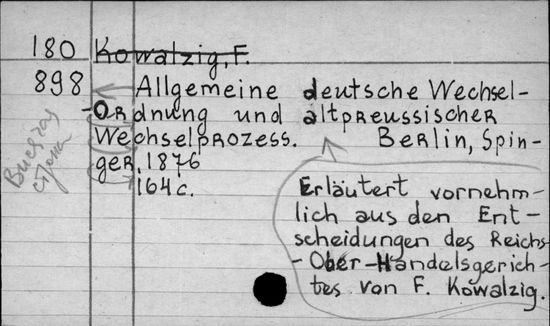 180 Kowalzig, F.
898 Allgemeine deutsche Wechsel-
-Ordnung und altpreussischer
Wechselprozess. Berlin, Spin-
ger, 1876
164 c.
Erläutert vornehm-
lich aus den Ent-
scheidungen des Reichs-
-Ober-Handelsgerich-
tes von F. Kowalzig.
строка